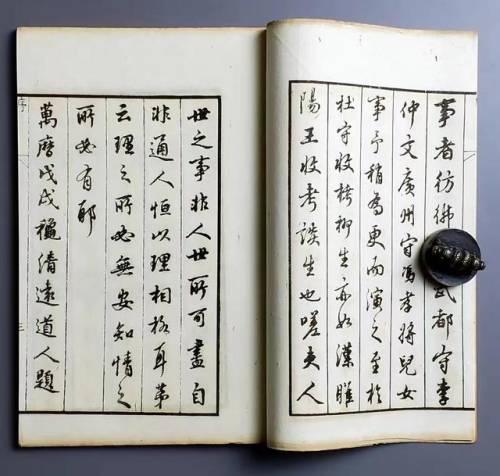 事者彷彿武都守李
仲文廣州守馮孝將兒女
事予稍為更而演之至於
杜守收拷柳生亦如漢睢
陽王收考談生也嗟夫人
世之事非人世所可盡自
非通人恒以理相格耳苐
云理之所必無安知情之
所必有邪
萬曆戊戌穐清遠道人題
序
三